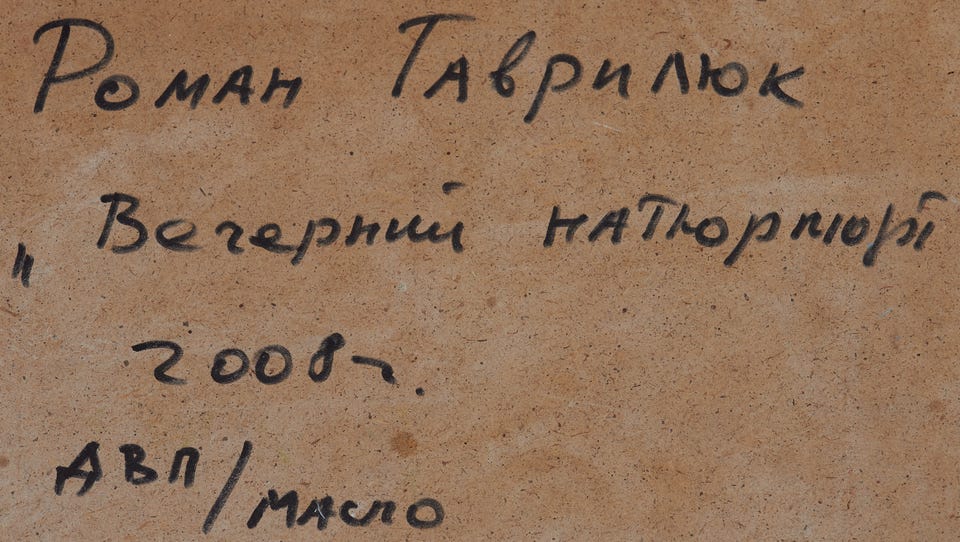 Роман Гаврилюк
„ Вечерний натюрпюрт
2008 г.
ДВП/масло